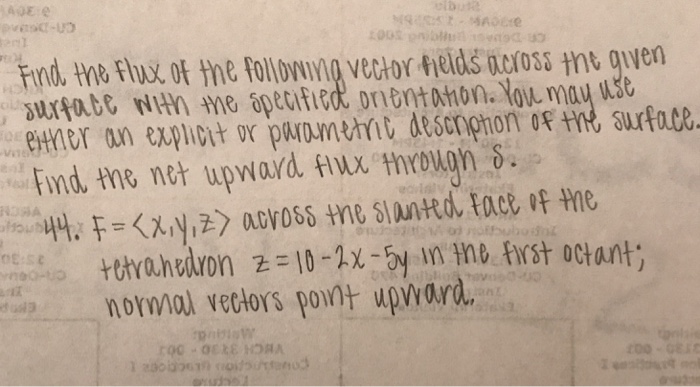 Find the flux of the following vector fields across the given
surface with the specified orientation. You may use
either an explicit or parametric description of the surface.
Find the net upward flux through S.
44. F = <x,y,z> across the slanted face of the
tetrahedron z = 10-2x-5y in the first octant;
normal vectors point upward.